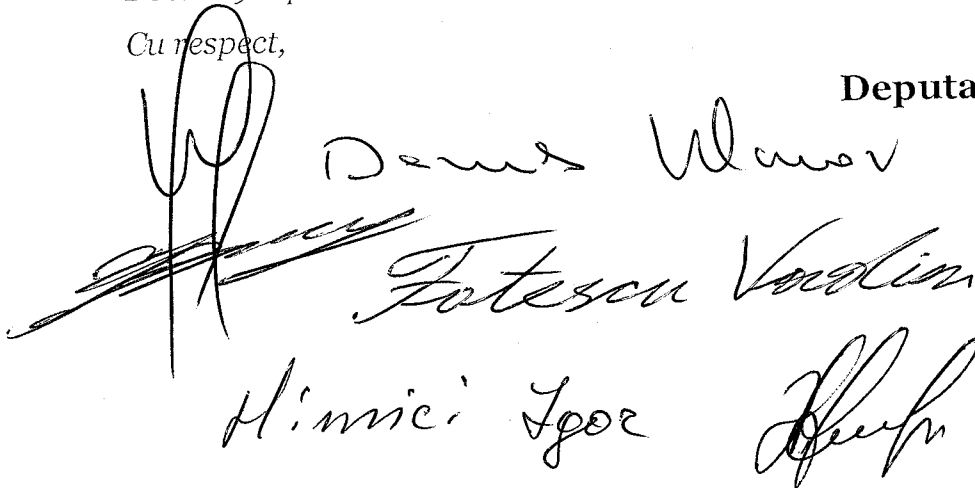 Cu respect,
Deputa
Denis Ulanov
Fotescu Vardian
Himici Igor